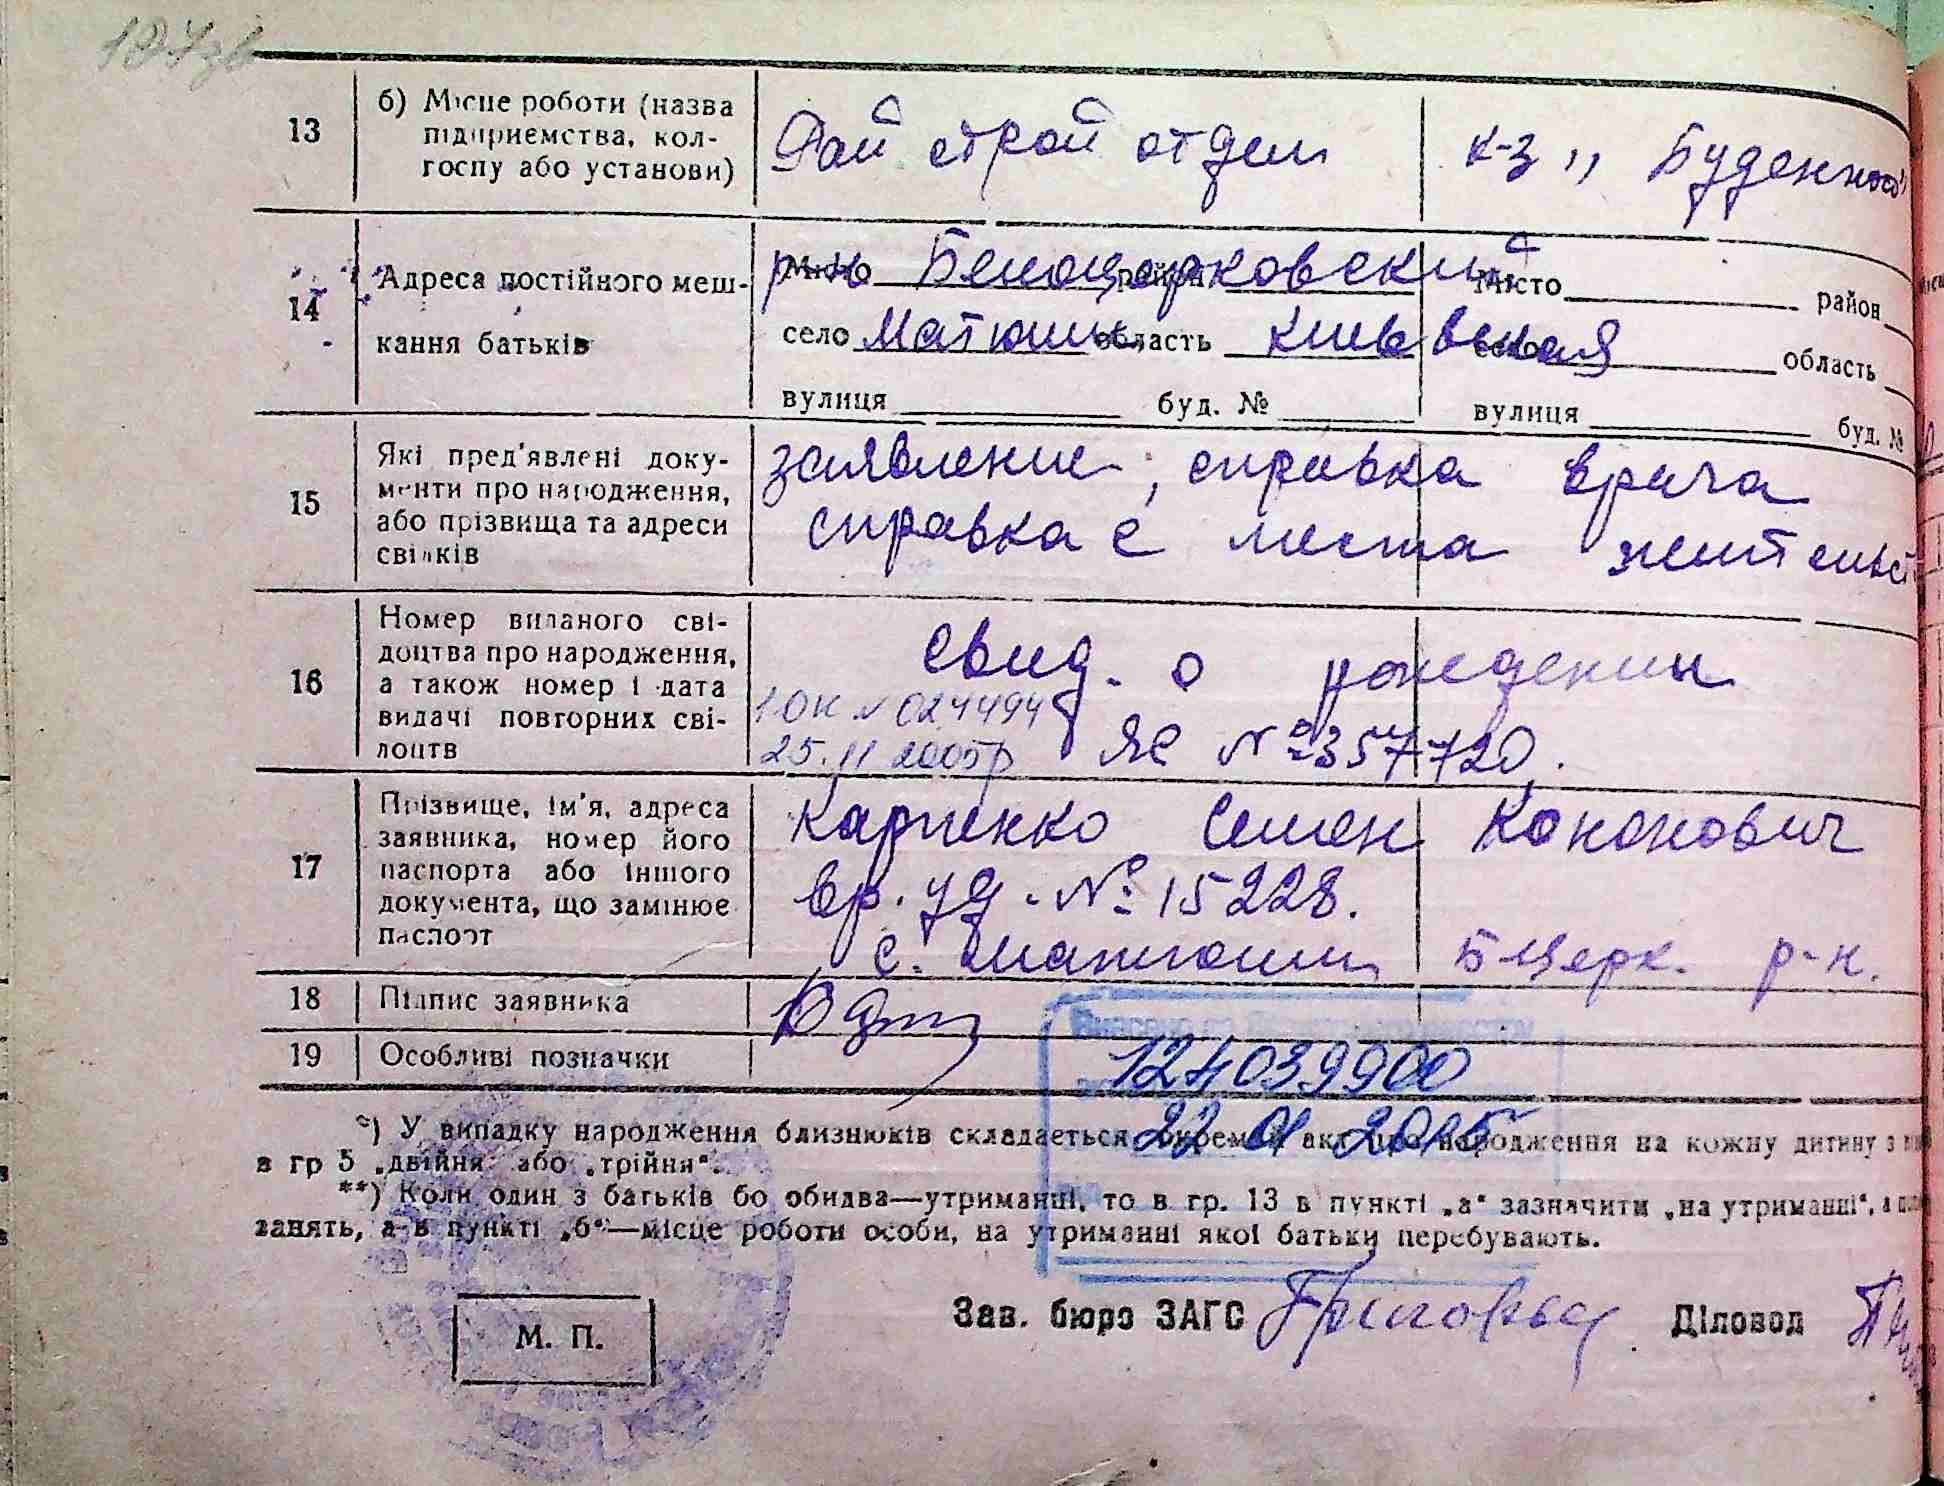 187зв
13
б) Місце роботи (назва
підприемства, кол-
госпу або установи)
Рай строй отдел
к-з „ Буденного"
14
Адреса постійного меш-
кання батьків
р-н Белоцерковский
місто район
село Матюши область Киевская
вулиця буд. №
місто район
село область
вулиця буд. №
15
Які пред'явлені доку-
менти про народження,
або прізвища та адреси
свідків
заявление, справка врача
справка с места жительст
16
Номер виданого сві-
доцтва про народження,
а також номер і дата
видачі повторних сві-
доцтв
свид. о рождении
1 ОК № 024494
25.11 2005р ЯС № 357720.
17
Прізвище, ім'я, адреса
заявника, номер його
паспорта або іншого
документа, що замінює
паспорт
Карпенко Семен Кононович
вр. уд. № 15228.
с. Матюши Б-Церк. р-н.
18
Підпис заявника
19
Особливі позначки
Внесено до Державного реєстру
124039900
22 01 2015
*) У випадку народження близнюків складається окремий акт про народження на кожну дитину з
в гр 5 „двійня" або „трійня".
**) Коли один з батьків бо обидва—утриманці, то в гр. 13 в пункті „а" зазначити „на утриманні", а
занять, а в пункті „б"—місце роботи особи, на утриманні якої батьки перебувають.
М. П.
Зав. бюро ЗАГС Діловод